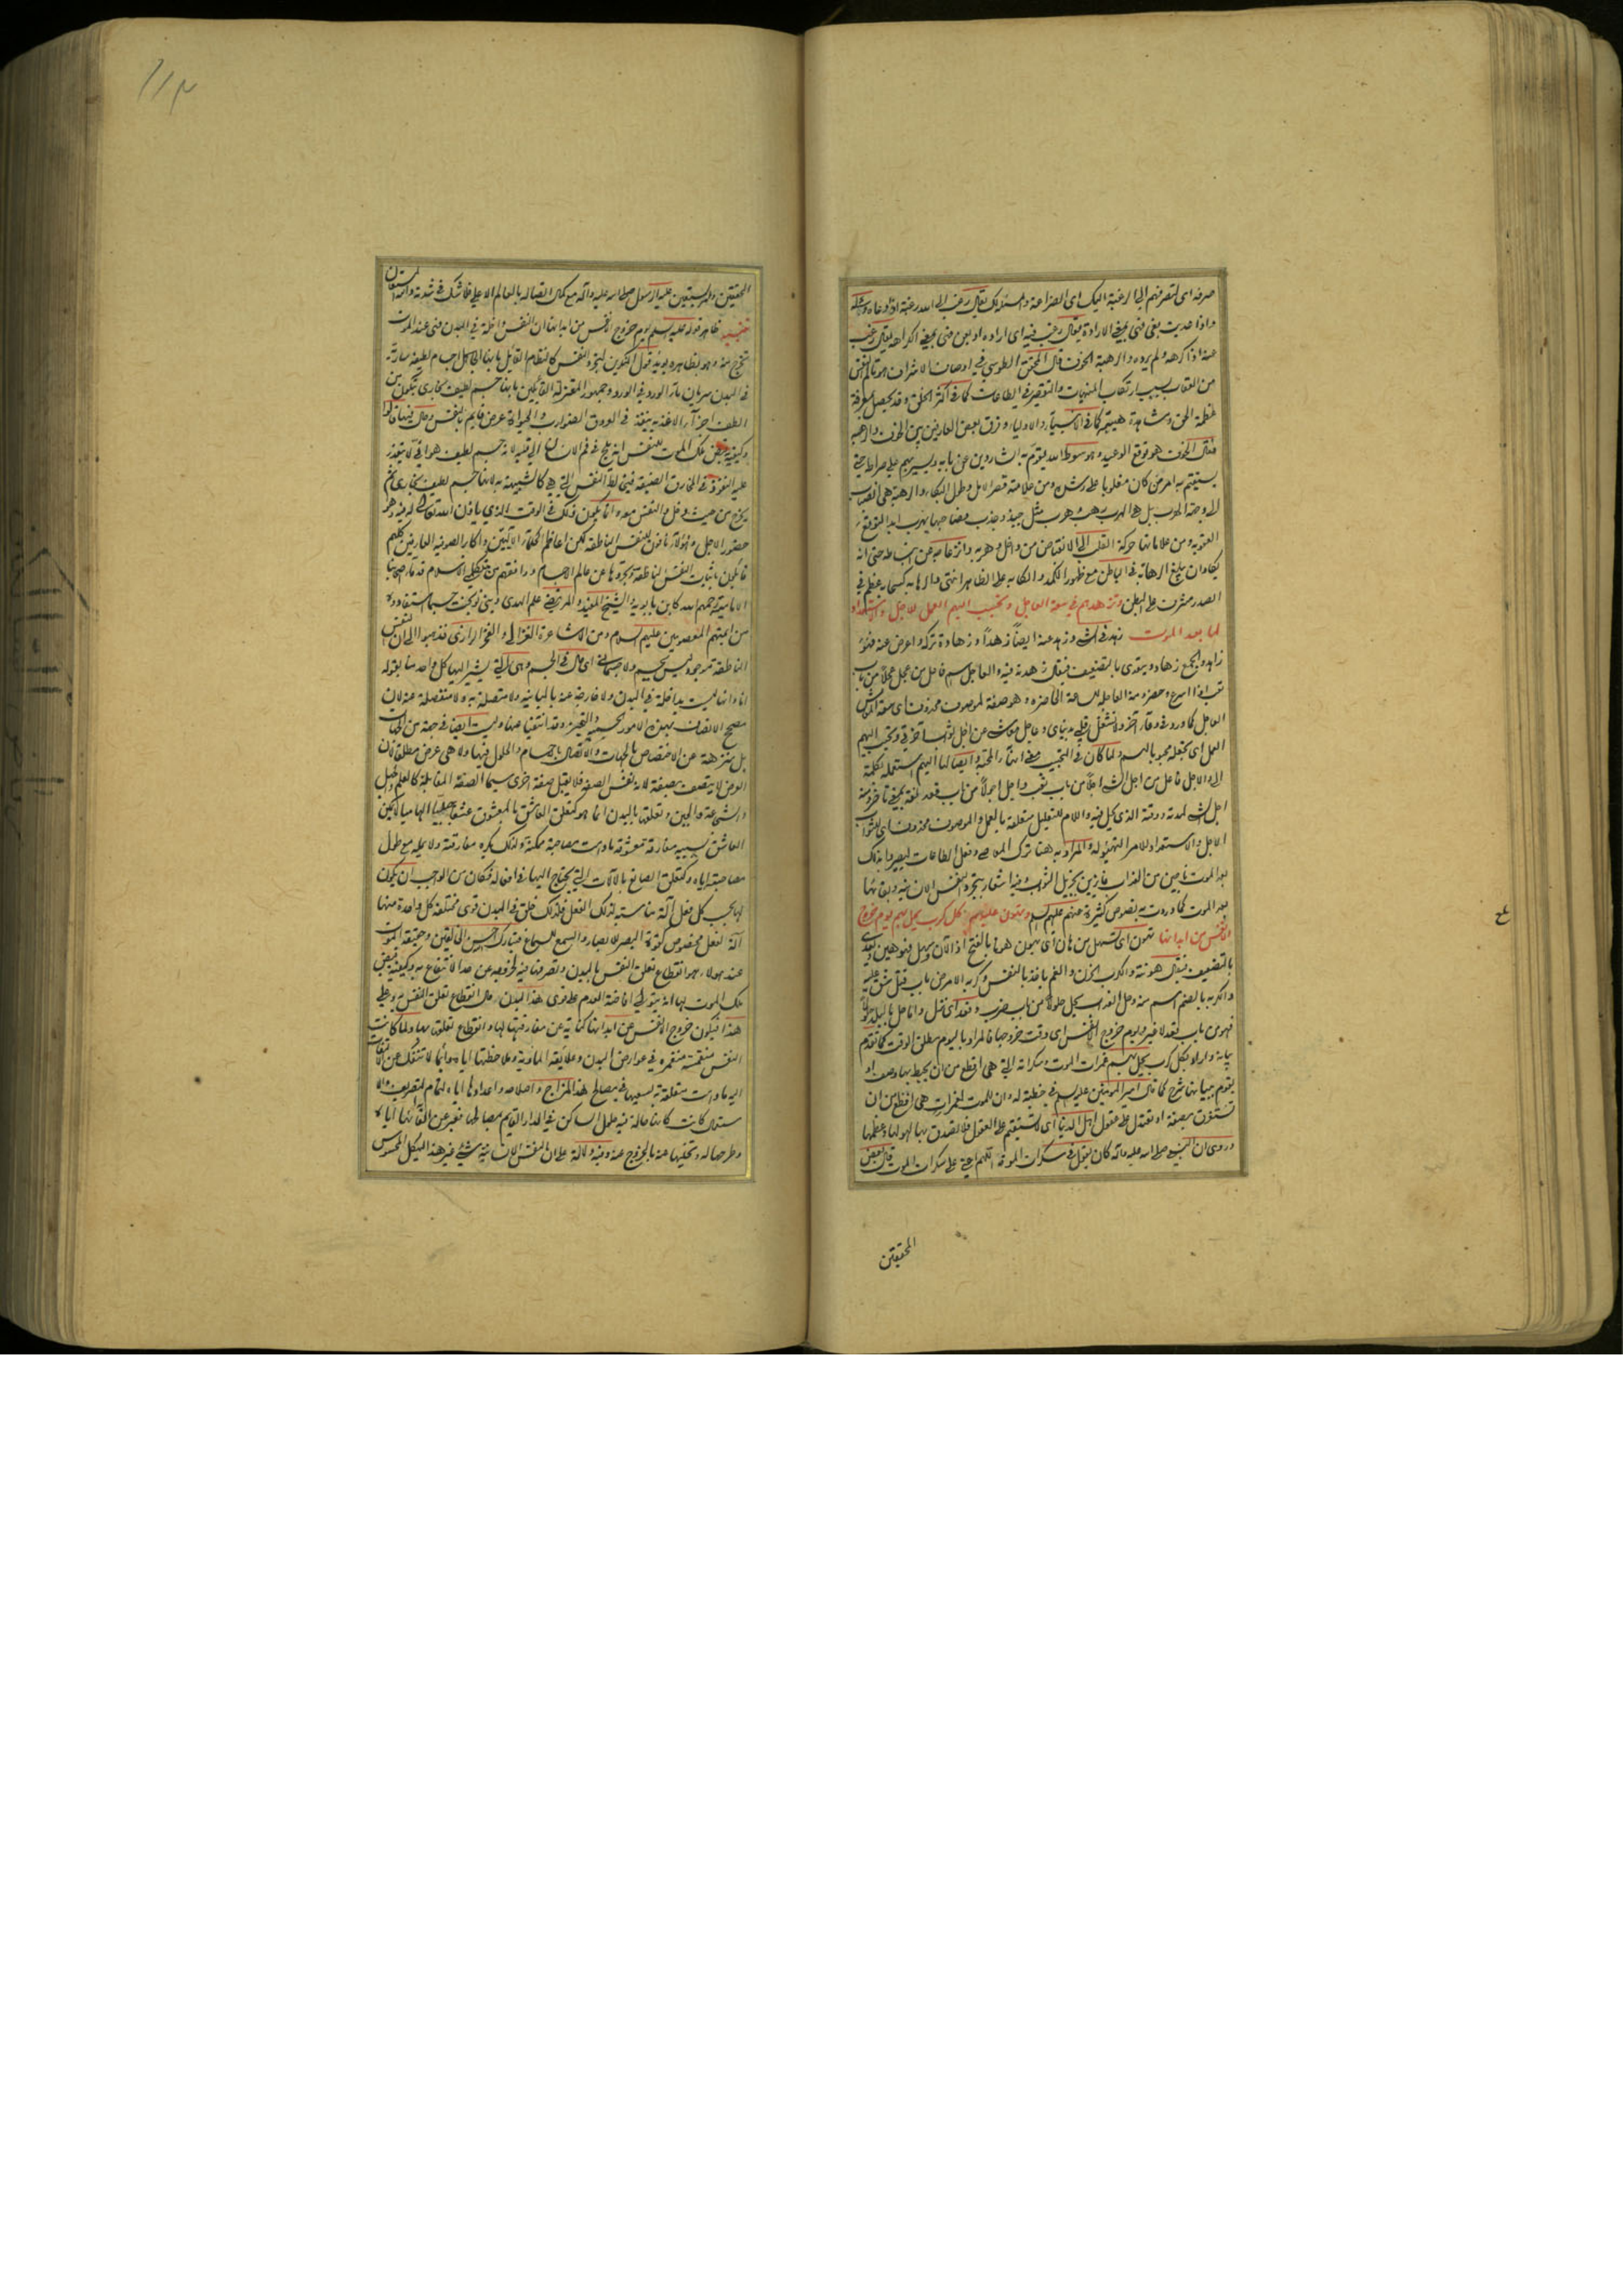 صرفه ای لتصرفهم الی الرغبة الیک ای الضراعة والمسئلة یقال رغب الی الله رغبة اذا دعاه وسأله
واذا عدیت بفی فهی بمعنی الارادة یقال رغب فیه ای اراده او بعن فهی بمعنی الکراهة یقال رغب
عنه اذا کرهه ولم یرده والرهبة الخوف قال المحقق الطوسی فی اوصاف الاشراف هو تألم النفس
من العقاب بسبب ارتکاب المنهیات والتقصیر فی الطاعات کما فی اکثر الخلق وقد یحصل بمعرفة
عظمة الحق ومشاهدة هیبته کما فی الانبیاء والاولیاء وفرق بعض العارفین بین الخوف والرهبة
فقال الخوف هو توقع الوعید وهو سوط الله یقوم به الشاردین عن بابه ویسیر بهم علی صراطه حتی
یستقیم به امر من کان مغلوبا علی رشده ومن علامته قصر الامل وطول البکاء والرهبة هی انصباب
الی وجهة الهرب بل هی الهرب رهب وهرب مثل جبذ وجذب فصاحبها یهرب ابدا لتوقع
العقوبة ومن علاماتها حرکة القلب الی الانقباض من داخل وهربه وانزعاجه عن انبساطه حتی انه
یکاد ان یبلغ الرهابة فی الباطن مع ظهور الکمد والکآبة علی الظاهر انتهی والرهابة کسحابة عظم فی
الصدر مشرف علی البطن وتزهدهم فی سعة العاجل وتحبب الیهم العمل للاجل والاستعداد
لما بعد الموت زهد فی الشیء وزهد عنه ایضا زهدا وزهادة ترکه واعرض عنه فهو
زاهد والجمع زهاد ویتعدی بالتضعیف فیقال زهدته فیه والعاجل اسم فاعل من عجل عجلا من باب
تعب اذا اسرع وحضر ومنه العاجلة للساعة الحاضرة وهو صفة لموصوف محذوف ای سعة المعاش
العاجل کما ورد فی دعاء آخر ولا تشغل قلبی بدنیای وعاجل معاشی عن آجل ثواب آخرتی وتحبب الیهم
العمل ای تجعله محبوبا لهم ولما کان فی التحبیب معنی انهاء المحبة وایصالها الیهم استعمله بکلمة
الی والاجل فاعل من اجل الشیء اجلا من باب تعب واجل اجولا من باب قعد لغة بمعنی تاخر ومنه
اجل الشیء لمدته ووقته الذی یحل فیه واللام للتعلیل متعلقة بالعمل والموصوف محذوف ای للثواب
الاجل والاستعداد للامر التهیؤ له والمراد به هنا ترک المعاصی وفعل الطاعات لیصیروا بذلک
بعد الموت ناجین من العذاب فائزین بجزیل الثواب وفیه اشعار بتجرد النفس الانسانیة وبقائها
بعد الموت کما وردت به نصوص کثیرة عنهم علیهم السلام وتهون علیهم کل کرب یحل بهم یوم خروج
الانفس من ابدانها تهون ای تسهل من هان ای یهون هونا بالفتح اذا لان وسهل فهو هین ویعدی
بالتضعیف فیقال هونته والکرب الحزن والغم یاخذ بالنفس وکربه الامر من باب قتل شق علیه
والکربة بالضم اسم منه وحل العذاب یحل حلولا من باب ضرب وقعد ای نزل واما حل بالبلد حلولا
فهو من باب قعد لا غیر ویوم خروج الانفس ای وقت خروجها فالمراد بالیوم مطلق الوقت کما تقدم
بیانه واراد بکل کرب یحل بهم غمرات الموت وسکراته التی هی افظع من ان یحیط بها وصف او
یقوم ببیانها شرح کما قال امیر المؤمنین علیه السلام فی خطبة له وان للموت لغمرات هی افظع من ان
تستغرق بصفة او تعتدل علی عقول اهل الدنیا ای لا تستقیم علی العقول فلا یصدق بها لهولها وعظمها
وروی ان النبی صلی الله علیه وآله کان یقول فی سکرات الموت اللهم اعنی علی سکرات الموت قال بعض
المحققین
المحققین ولم یستعن علیه الرسول صلی الله علیه وآله مع کمال اتصاله بالعالم الاعلی فلا شک فی شدته والله المستعان
تنبیه ظاهر قوله علیه السلم یوم خروج الانفس من ابدانها ان النفس داخلة فی البدن فهی عند الموت
تخرج منه وهو بظاهره یؤید قول المنکرین لتجرد النفس کالنظام القائل بانها اجسام لطیفة ساریة
فی البدن سریان ماء الورد فی الورد وجمهور المعتزلة القائلین بانها جسم لطیف بخاری یتکون من
الطف اجزاء الاغذیة ینفذ فی العروق الضوارب والحیواة عرض قایم بالنفس وحال فیها قالوا
وکیفیة قبض ملک الموت للنفس انه یلج فی فم الانسان الی قلبه لانه جسم لطیف هوائی لا یتعذر
علیه النفوذ فی المخارق الضیقة فیخالط النفس التی هی کالشبیهة به لانها جسم لطیف بخاری ثم
یخرج من حیث دخل والنفس معه وانما یکون ذلک فی الوقت الذی یاذن الله تعالی له فیه وهو
حضور الاجل وهؤلاء نافون للنفس الناطقة لکن اعاظم الحکماء الالهیین واکابر الصوفیة العارفین کلهم
قائلون باثبات النفس الناطقة وتجردها عن عالم الاجسام ووافقهم من متکلمی الاسلام قدماء اصحابنا
الامامیة رحمهم الله کابن بابویه والشیخ المفید والمرتضی علم الهدی وبنی نوبخت حسبما استفادوه
من ائمتهم المعصومین علیهم السلام ومن الاشاعرة الغزالی والفخر الرازی فذهبوا الی ان النفس
الناطقة موجود لیس بجسم ولا جسمانی ای حال فی الجسم وهی التی یشیر الیها کل واحد منا بقوله
انا وانها لیست بداخلة فی البدن ولا خارجة عنه بالمباینة ولا متصلة به ولا منفصلة عنه لان
مصحح الاتصاف بهذه الامور الجسمیة والتحیز وقد انتفیا عنها ولیست ایضا فی جهة من الجهات
بل منزهة عن الاختصاص بالجهات والاتصال بالاجسام والحلول فیها ولا هی عرض مطلقا لان
العرض لا یتصف بصفة لانه نفس الصفة فلا یقبل صفة اخری سیما الصفة المقابلة کالعلم والجهل
والشجاعة والجبن وتعلقها بالبدن انما هو کتعلق العاشق بالمعشوق عشقا جبلیا الهامیا لا یتمکن
العاشق بسببه مفارقة معشوقه ما دامت مصاحبته ممکنة ولذلک یکره مفارقته ولا یمله مع طول
مصاحبته ایاه وکتعلق الصانع بالآلات التی یحتاج الیها فی افعاله فکان من الواجب ان یکون
لها بحسب کل فعل آلة مناسبة لذلک الفعل فلذلک خلق فی البدن قوی مختلفة کل واحدة منها
آلة لفعل مخصوص کقوة البصر للابصار والسمع للسماع فتبارک احسن الخالقین وحقیقة الموت
عند هؤلاء هو انقطاع تعلق النفس بالبدن وتصرفها فیه لخروجه عن حد الانتفاع به وکیفیة قبض
ملک الموت لها انه یتولی افاضة العدم علی قوی هذا البدن حال انقطاع تعلق النفس به وعلی
هذا فیکون خروج الانفس عن ابدانها کنایة عن مفارقتها لها وانقطاع تعلقها بها ولما کانت
النفس منغمسة منغمرة فی عوارض البدن وعلایقه المادیة وملاحظتها ایاه دائما لا تنفک عن الالتفات
الیه ما دامت متعلقة به لسعیها فی مصالح هذا المزاج واصلاحه واعدادها ایاه لتمام التصریف والا
ستعمال کانت کانها حالة فیه حلول الساکن فی الدار القایم بمصالحها فعبر عن القائها ایاه
وطرحها له وتخلیها عنه بالخروج عنه وفیه دلالة علی ان النفس الانسانیة شیء غیر هذا الهیکل المحسوس